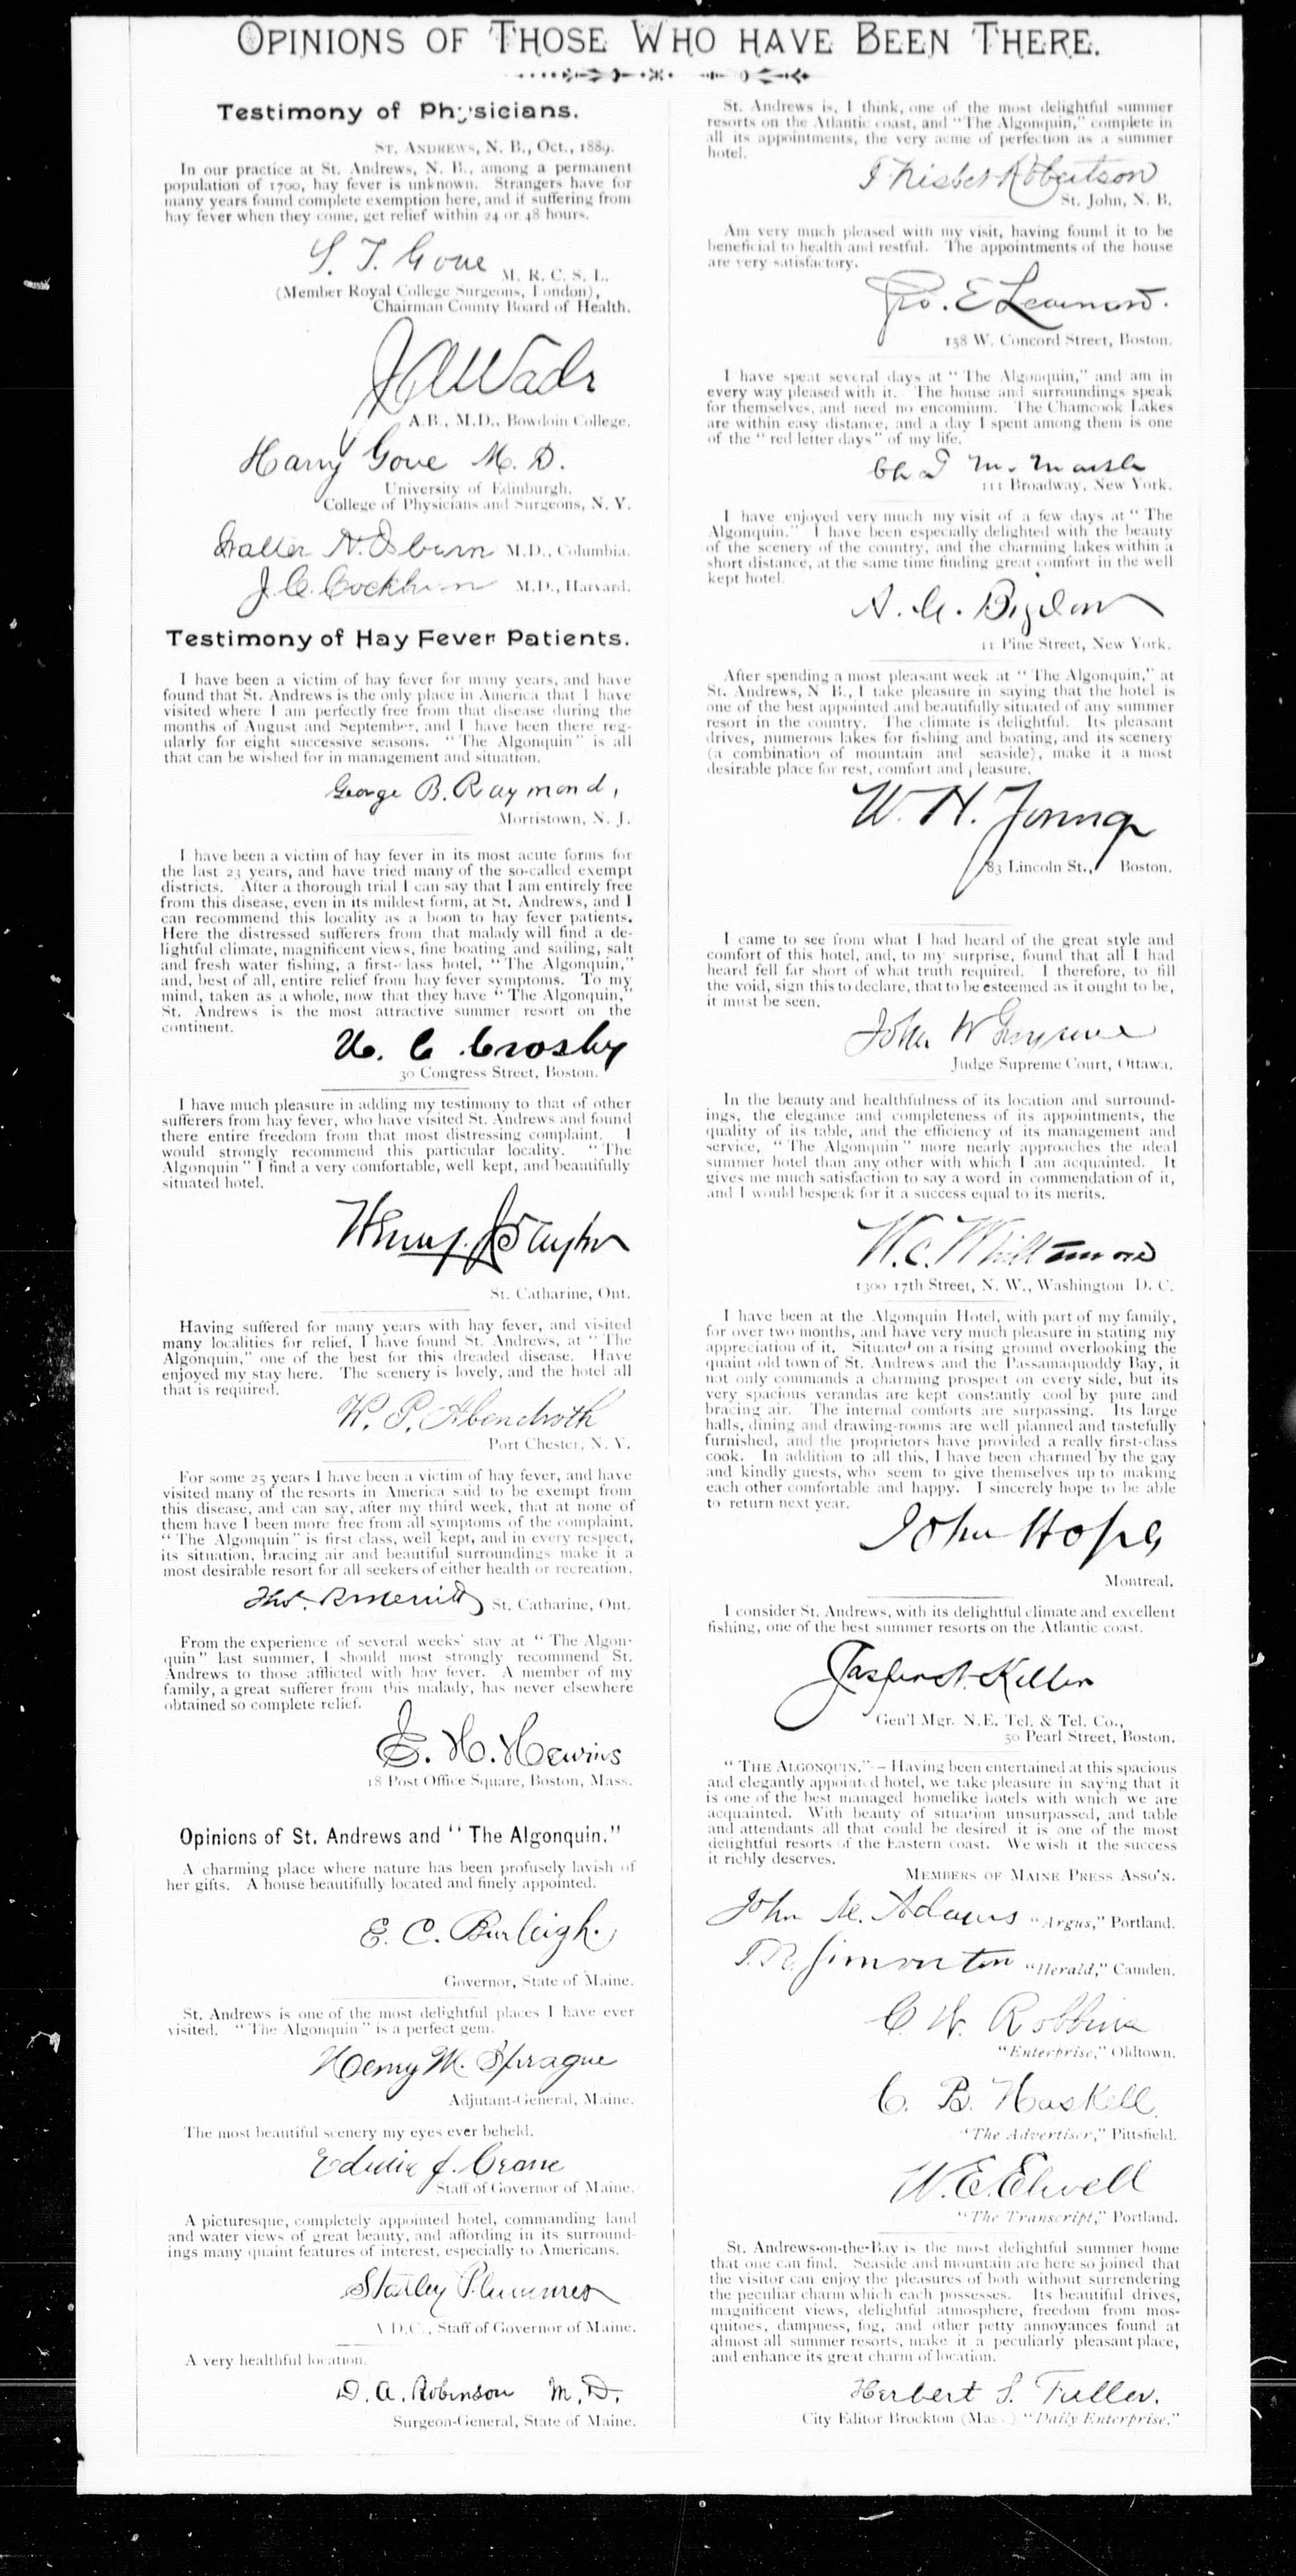 OPINIONS OF THOSE WHO HAVE BEEN THERE.
Testimony of Physicians.
ST. ANDREWS, N. B., Oct., 1889.
In our practice at St. Andrews, N. B., among a permanent
population of 1700, hay fever is unknown. Strangers have for
many years found complete exemption here, and if suffering from
hay fever when they come, get relief within 24 or 48 hours.
S. T. Gove
M. R. C. S. L.
(Member Royal College Surgeons, London),
Chairman County Board of Health.
J A Wade
A.B., M.D., Bowdoin College.
Harry Gove M. D.
University of Edinburgh.
College of Physicians and Surgeons, N. Y.
M.D., Columbia.
M.D., Harvard.
Testimony of Hay Fever Patients.
I have been a victim of hay fever for many years, and have
found that St. Andrews is the only place in America that I have
visited where I am perfectly free from that disease during the
months of August and September, and I have been there reg-
ularly for eight successive seasons. "The Algonquin" is all
that can be wished for in management and situation.
George B. Raymond,
Morristown, N. J.
I have been a victim of hay fever in its most acute forms for
the last 23 years, and have tried many of the so-called exempt
districts. After a thorough trial I can say that I am entirely free
from this disease, even in its mildest form, at St. Andrews, and I
can recommend this locality as a boon to hay fever patients.
Here the distressed sufferers from that malady will find a de-
lightful climate, magnificent views, fine boating and sailing, salt
and fresh water fishing, a first-class hotel, "The Algonquin,"
and, best of all, entire relief from hay fever symptoms. To my
mind, taken as a whole, now that they have "The Algonquin,"
St. Andrews is the most attractive summer resort on the
continent.
C Crosby
30 Congress Street, Boston.
I have much pleasure in adding my testimony to that of other
sufferers from hay fever, who have visited St. Andrews and found
there entire freedom from that most distressing complaint. I
would strongly recommend this particular locality. "The
Algonquin" I find a very comfortable, well kept, and beautifully
situated hotel.
St. Catharine, Ont.
Having suffered for many years with hay fever, and visited
many localities for relief, I have found St. Andrews, at "The
Algonquin," one of the best for this dreaded disease. Have
enjoyed my stay here. The scenery is lovely, and the hotel all
that is required.
W. P. Abendroth
Port Chester, N. Y.
For some 25 years I have been a victim of hay fever, and have
visited many of the resorts in America said to be exempt from
this disease, and can say, after my third week, that at none of
them have I been more free from all symptoms of the complaint.
"The Algonquin" is first class, well kept, and in every respect,
its situation, bracing air and beautiful surroundings make it a
most desirable resort for all seekers of either health or recreation.
Thos. R Merritt St. Catharine, Ont.
From the experience of several weeks' stay at "The Algon-
quin" last summer, I should most strongly recommend St.
Andrews to those afflicted with hay fever. A member of my
family, a great sufferer from this malady, has never elsewhere
obtained so complete relief.
E. H. Hewins
18 Post Office Square, Boston, Mass.
Opinions of St. Andrews and "The Algonquin."
A charming place where nature has been profusely lavish of
her gifts. A house beautifully located and finely appointed.
E. C. Burleigh.
Governor, State of Maine.
St. Andrews is one of the most delightful places I have ever
visited. "The Algonquin" is a perfect gem.
Henry M. Sprague
Adjutant-General, Maine.
The most beautiful scenery my eyes ever beheld.
Edwin J. Crane
Staff of Governor of Maine.
A picturesque, completely appointed hotel, commanding land
and water views of great beauty, and affording in its surround-
ings many quaint features of interest, especially to Americans.
Stanley Plummer
A D.C., Staff of Governor of Maine.
A very healthful location.
D. A. Robinson M. D.
Surgeon-General, State of Maine.
St. Andrews is, I think, one of the most delightful summer
resorts on the Atlantic coast, and "The Algonquin," complete in
all its appointments, the very acme of perfection as a summer
hotel.
Nisbet Robertson
St. John, N. B.
Am very much pleased with my visit, having found it to be
beneficial to health and restful. The appointments of the house
are very satisfactory.
Geo. E Learnard.
158 W. Concord Street, Boston.
I have spent several days at "The Algonquin," and am in
every way pleased with it. The house and surroundings speak
for themselves, and need no encomium. The Chamcook Lakes
are within easy distance, and a day I spent among them is one
of the "red letter days" of my life.
111 Broadway, New York.
I have enjoyed very much my visit of a few days at "The
Algonquin." I have been especially delighted with the beauty
of the scenery of the country, and the charming lakes within a
short distance, at the same time finding great comfort in the well
kept hotel.
11 Pine Street, New York.
After spending a most pleasant week at "The Algonquin," at
St. Andrews, N B., I take pleasure in saying that the hotel is
one of the best appointed and beautifully situated of any summer
resort in the country. The climate is delightful. Its pleasant
drives, numerous lakes for fishing and boating, and its scenery
(a combination of mountain and seaside), make it a most
desirable place for rest, comfort and pleasure.
W. H. Young
83 Lincoln St., Boston.
I came to see from what I had heard of the great style and
comfort of this hotel, and, to my surprise, found that all I had
heard fell far short of what truth required. I therefore, to fill
the void, sign this to declare, that to be esteemed as it ought to be,
it must be seen.
John W Gwynne
Judge Supreme Court, Ottawa.
In the beauty and healthfulness of its location and surround-
ings, the elegance and completeness of its appointments, the
quality of its table, and the efficiency of its management and
service, "The Algonquin" more nearly approaches the ideal
summer hotel than any other with which I am acquainted. It
gives me much satisfaction to say a word in commendation of it,
and I would bespeak for it a success equal to its merits.
W. C. Whittemore
1300 17th Street, N. W., Washington D. C.
I have been at the Algonquin Hotel, with part of my family,
for over two months, and have very much pleasure in stating my
appreciation of it. Situated on a rising ground overlooking the
quaint old town of St. Andrews and the Passamaquoddy Bay, it
not only commands a charming prospect on every side, but its
very spacious verandas are kept constantly cool by pure and
bracing air. The internal comforts are surpassing. Its large
halls, dining and drawing-rooms are well planned and tastefully
furnished, and the proprietors have provided a really first-class
cook. In addition to all this, I have been charmed by the gay
and kindly guests, who seem to give themselves up to making
each other comfortable and happy. I sincerely hope to be able
to return next year.
John Hope
Montreal.
I consider St. Andrews, with its delightful climate and excellent
fishing, one of the best summer resorts on the Atlantic coast.
Jasper N. Keller
Gen'l Mgr. N.E. Tel. & Tel. Co.,
50 Pearl Street, Boston.
"THE ALGONQUIN." — Having been entertained at this spacious
and elegantly appointed hotel, we take pleasure in saying that it
is one of the best managed homelike hotels with which we are
acquainted. With beauty of situation unsurpassed, and table
and attendants all that could be desired it is one of the most
delightful resorts of the Eastern coast. We wish it the success
it richly deserves.
MEMBERS OF MAINE PRESS ASSO'N.
John M. Adams "Argus," Portland.
T. R. Simonton "Herald," Camden.
C. W. Robbins
"Enterprise," Oldtown.
C. B. Haskell.
"The Advertiser," Pittsfield.
W. E. Elwell
"The Transcript," Portland.
St. Andrews-on-the-Bay is the most delightful summer home
that one can find. Seaside and mountain are here so joined that
the visitor can enjoy the pleasures of both without surrendering
the peculiar charm which each possesses. Its beautiful drives,
magnificent views, delightful atmosphere, freedom from mos-
quitoes, dampness, fog, and other petty annoyances found at
almost all summer resorts, make it a peculiarly pleasant place,
and enhance its great charm of location.
Herbert S. Fuller.
City Editor Brockton (Mass.) "Daily Enterprise."